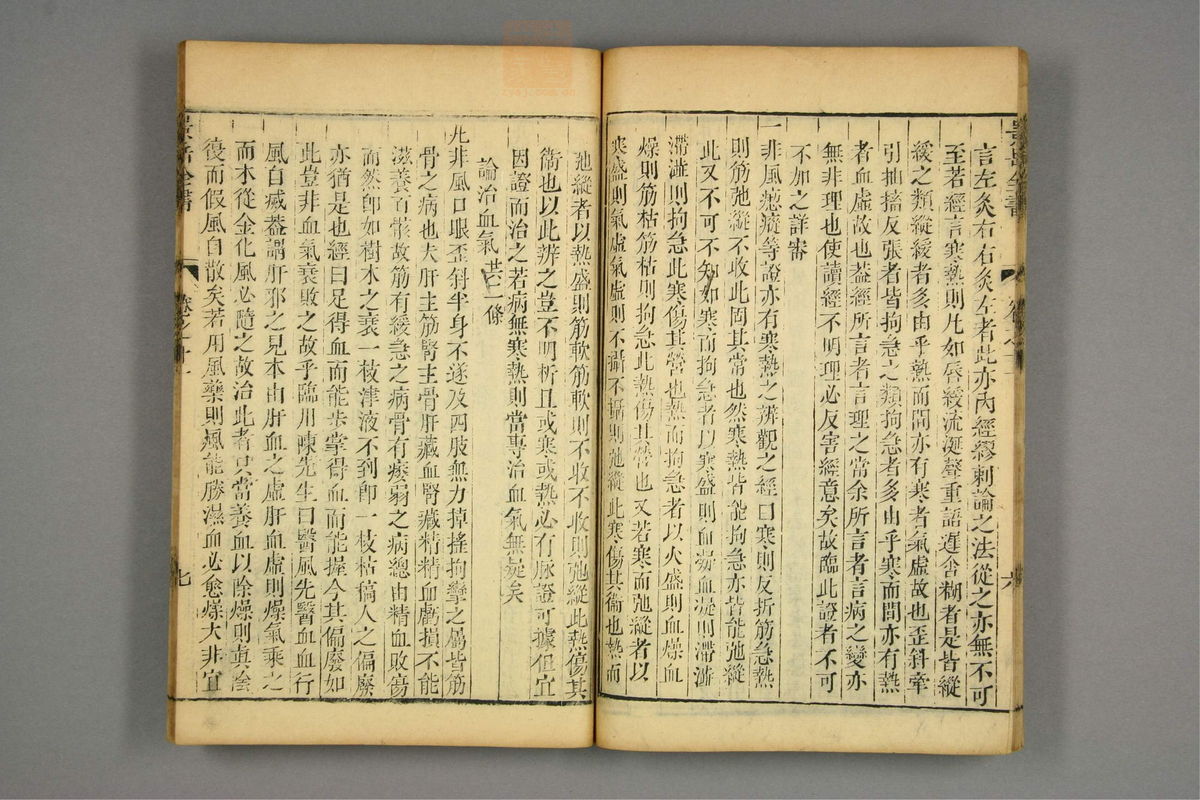 言左灸右右灸左者此亦內經繆刺論之法從之亦無不可
至若經言寒熱則凡如唇緩流涎聲重語遲含糊者是皆縱
緩之類縱緩者多由乎熱而間亦有寒者氣虛故也歪斜牽
引抽搐反張者皆拘急之類拘急者多由乎寒而間亦有熱
者血虛故也蓋經所言者言理之常余所言者言病之變亦
無非理也使讀經不明理必反害經意矣故臨此證者不可
不加之詳審
一非風瘛瘲等證亦有寒熱之辨觀之經曰寒則反折筋急熱
則筋弛縱不收此固其常也然寒熱皆能拘急亦皆能弛縱
此又不可不知如寒而拘急者以寒盛則血凝血凝則滯澁
滯澁則拘急此寒傷其營也熱而拘急者以火盛則血燥血
燥則筋枯筋枯則拘急此熱傷其營也又若寒而弛縱者以
寒盛則氣虛氣虛則不攝不攝則弛縱此寒傷其衞也熱而
弛縱者以熱盛則筋軟筋軟則不收不收則弛縱此熱傷其
衞也以此辨之豈不明析且或寒或熱必有脉證可據但宜
因證而治之若病無寒熱則當專治血氣無疑矣
論治血氣 共二條
凡非風口眼歪斜半身不遂及四肢無力掉搖拘攣之屬皆筋
骨之病也夫肝主筋腎主骨肝藏血腎藏精精血虧損不能
滋養百骸故筋有緩急之病骨有痿弱之病總由精血敗傷
而然卽如樹木之衰一枝津液不到卽一枝枯槁人之偏廢
亦猶是也經曰足得血而能步掌得血而能握今其偏廢如
此豈非血氣衰敗之故乎臨川陳先生曰醫風先醫血血行
風自滅葢謂肝邪之見本由肝血之虛肝血虛則燥氣乘之
而木從金化風必隨之故治此者只當養血以除燥則真陰
復而假風自散矣若用風藥則風能勝濕血必愈燥大非宜
景岳全書
卷之十一
六
景岳全書
卷之十一
七